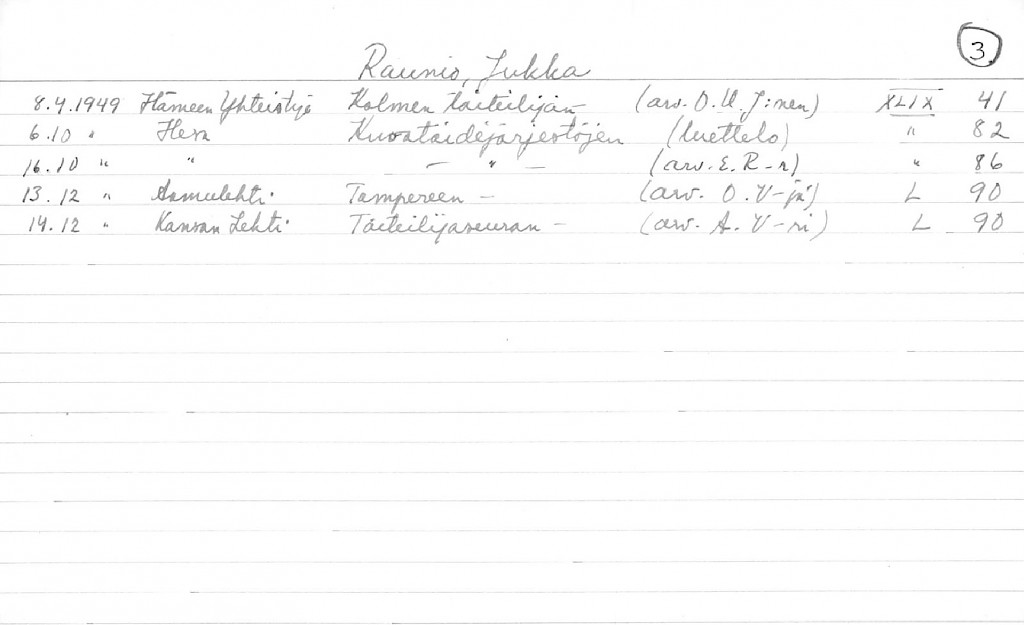 3
Raunio, Jukka
8.4.1949 Hämeen Yhteistyö Kolmen taiteilijan - (arv. O.U. J:nen) XLIX 41
6.10 " Kuvataidejärjestöjen (luettelo) " 82
16.10 " " - " - (arv. E. R-n) " 86
13.12 " Aamulehti Tampereen - (arv. O. V-jä) L 90
14.12 " Kansan Lehti Taiteilijaseuran - (arv. A. V-ri) L 90